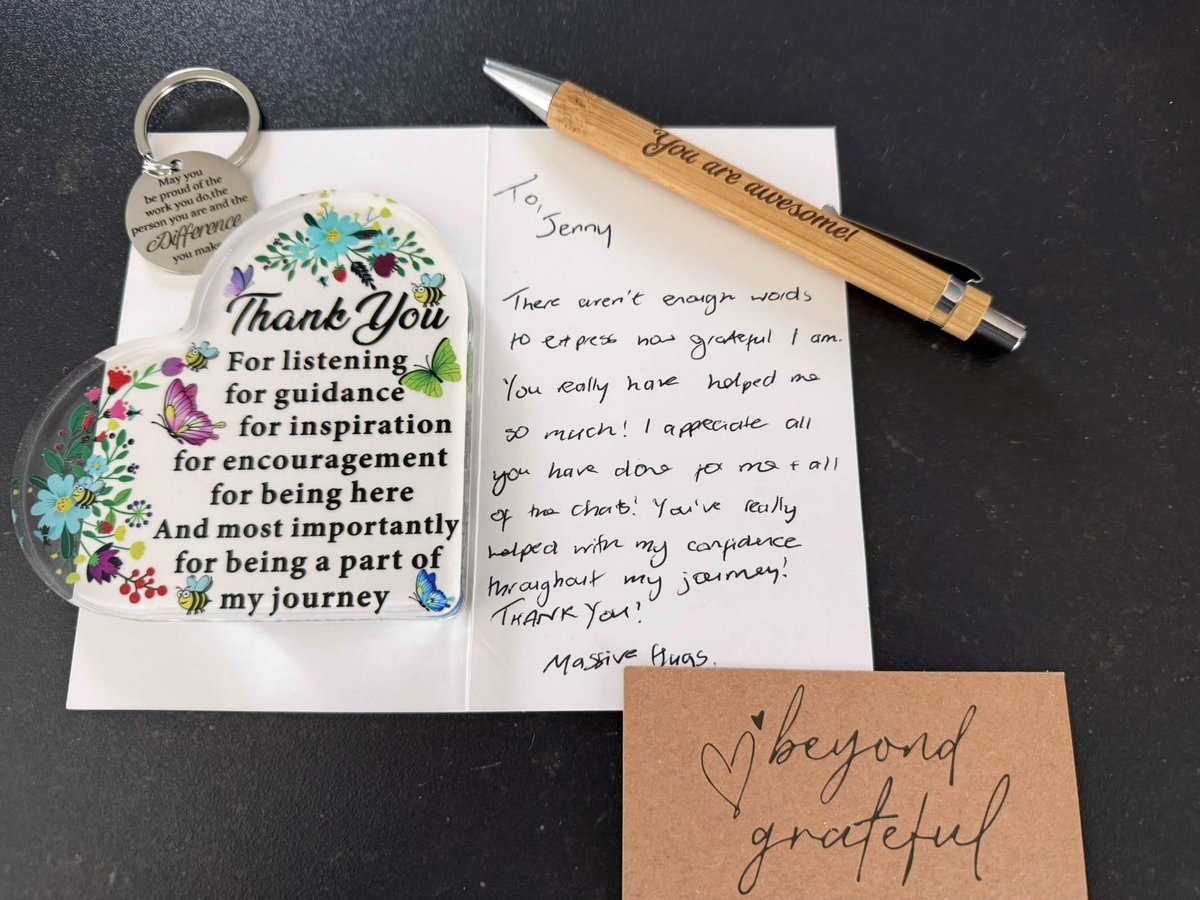 May you
be proud of the
work you do,the
person you are and the
Difference
you make
Thank You
For listening
for guidance
for inspiration
for encouragement
for being here
And most importantly
for being a part of
my journey
You are awesome!
To,
Jenny
There aren't enough words
to express how grateful I am.
You really have helped me
so much! I appeciate all
you have done for me + all
of the chats! You've really
helped with my confidence
throughout my journey!
THANK YOU!
Massive Hugs.
beyond
grateful